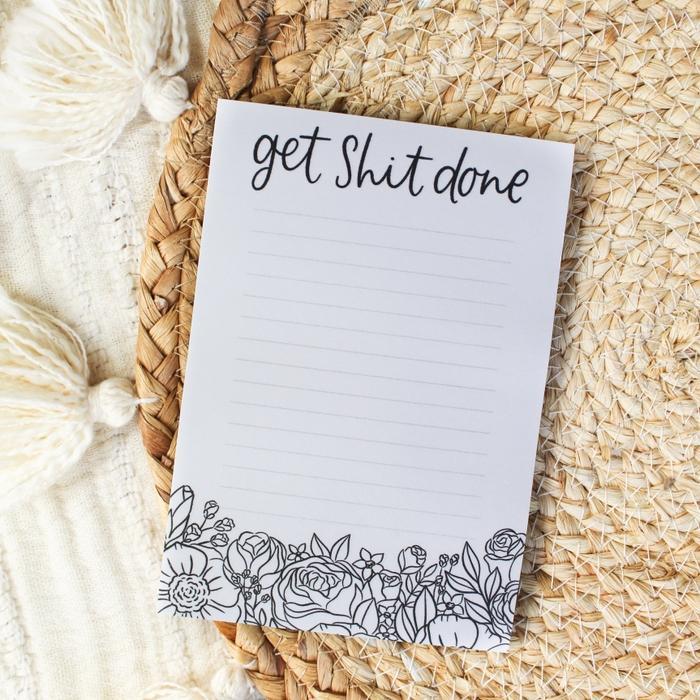 get Shit done